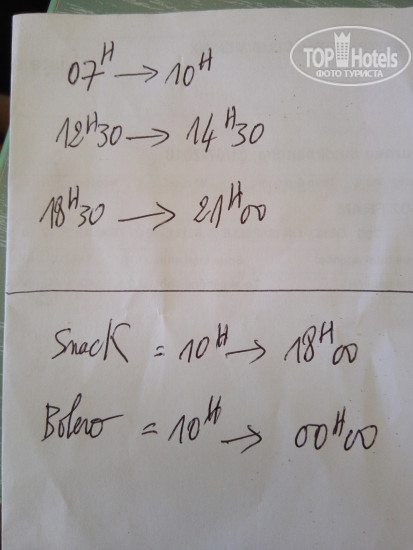 TOP Hotels
ФОТО ТУРИСТА
07H → 10H
12H30 → 14H30
18H30 → 21H00
Snack = 10H → 18H00
Bolero = 10H → 00H00